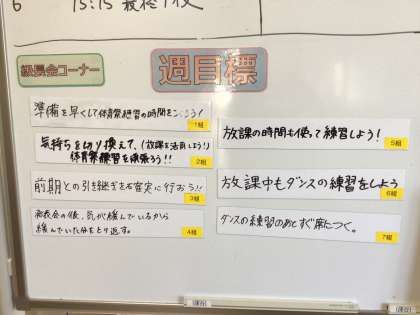 6 15:15 最終下校
級長会コーナー
週目標
準備を早くして体育祭練習の時間を
1組
気持ちを切り換えて、(放課を活用しよう!)
体育祭練習を頑張ろう!!
2組
前期との引き継ぎを確実に行おう!!
3組
気が緩んでいるから
緩んでいた分をとり返す。
4組
放課の時間も使って練習しよう!
5組
放課中もダンスの練習をしよう
6組
ダンスの練習のあとすぐ席につく。
7組